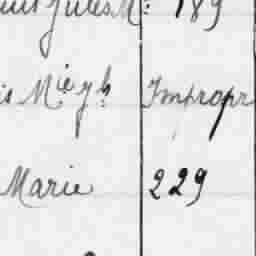 Jules M: 189
is Mie Jh Impropr
Marie 229